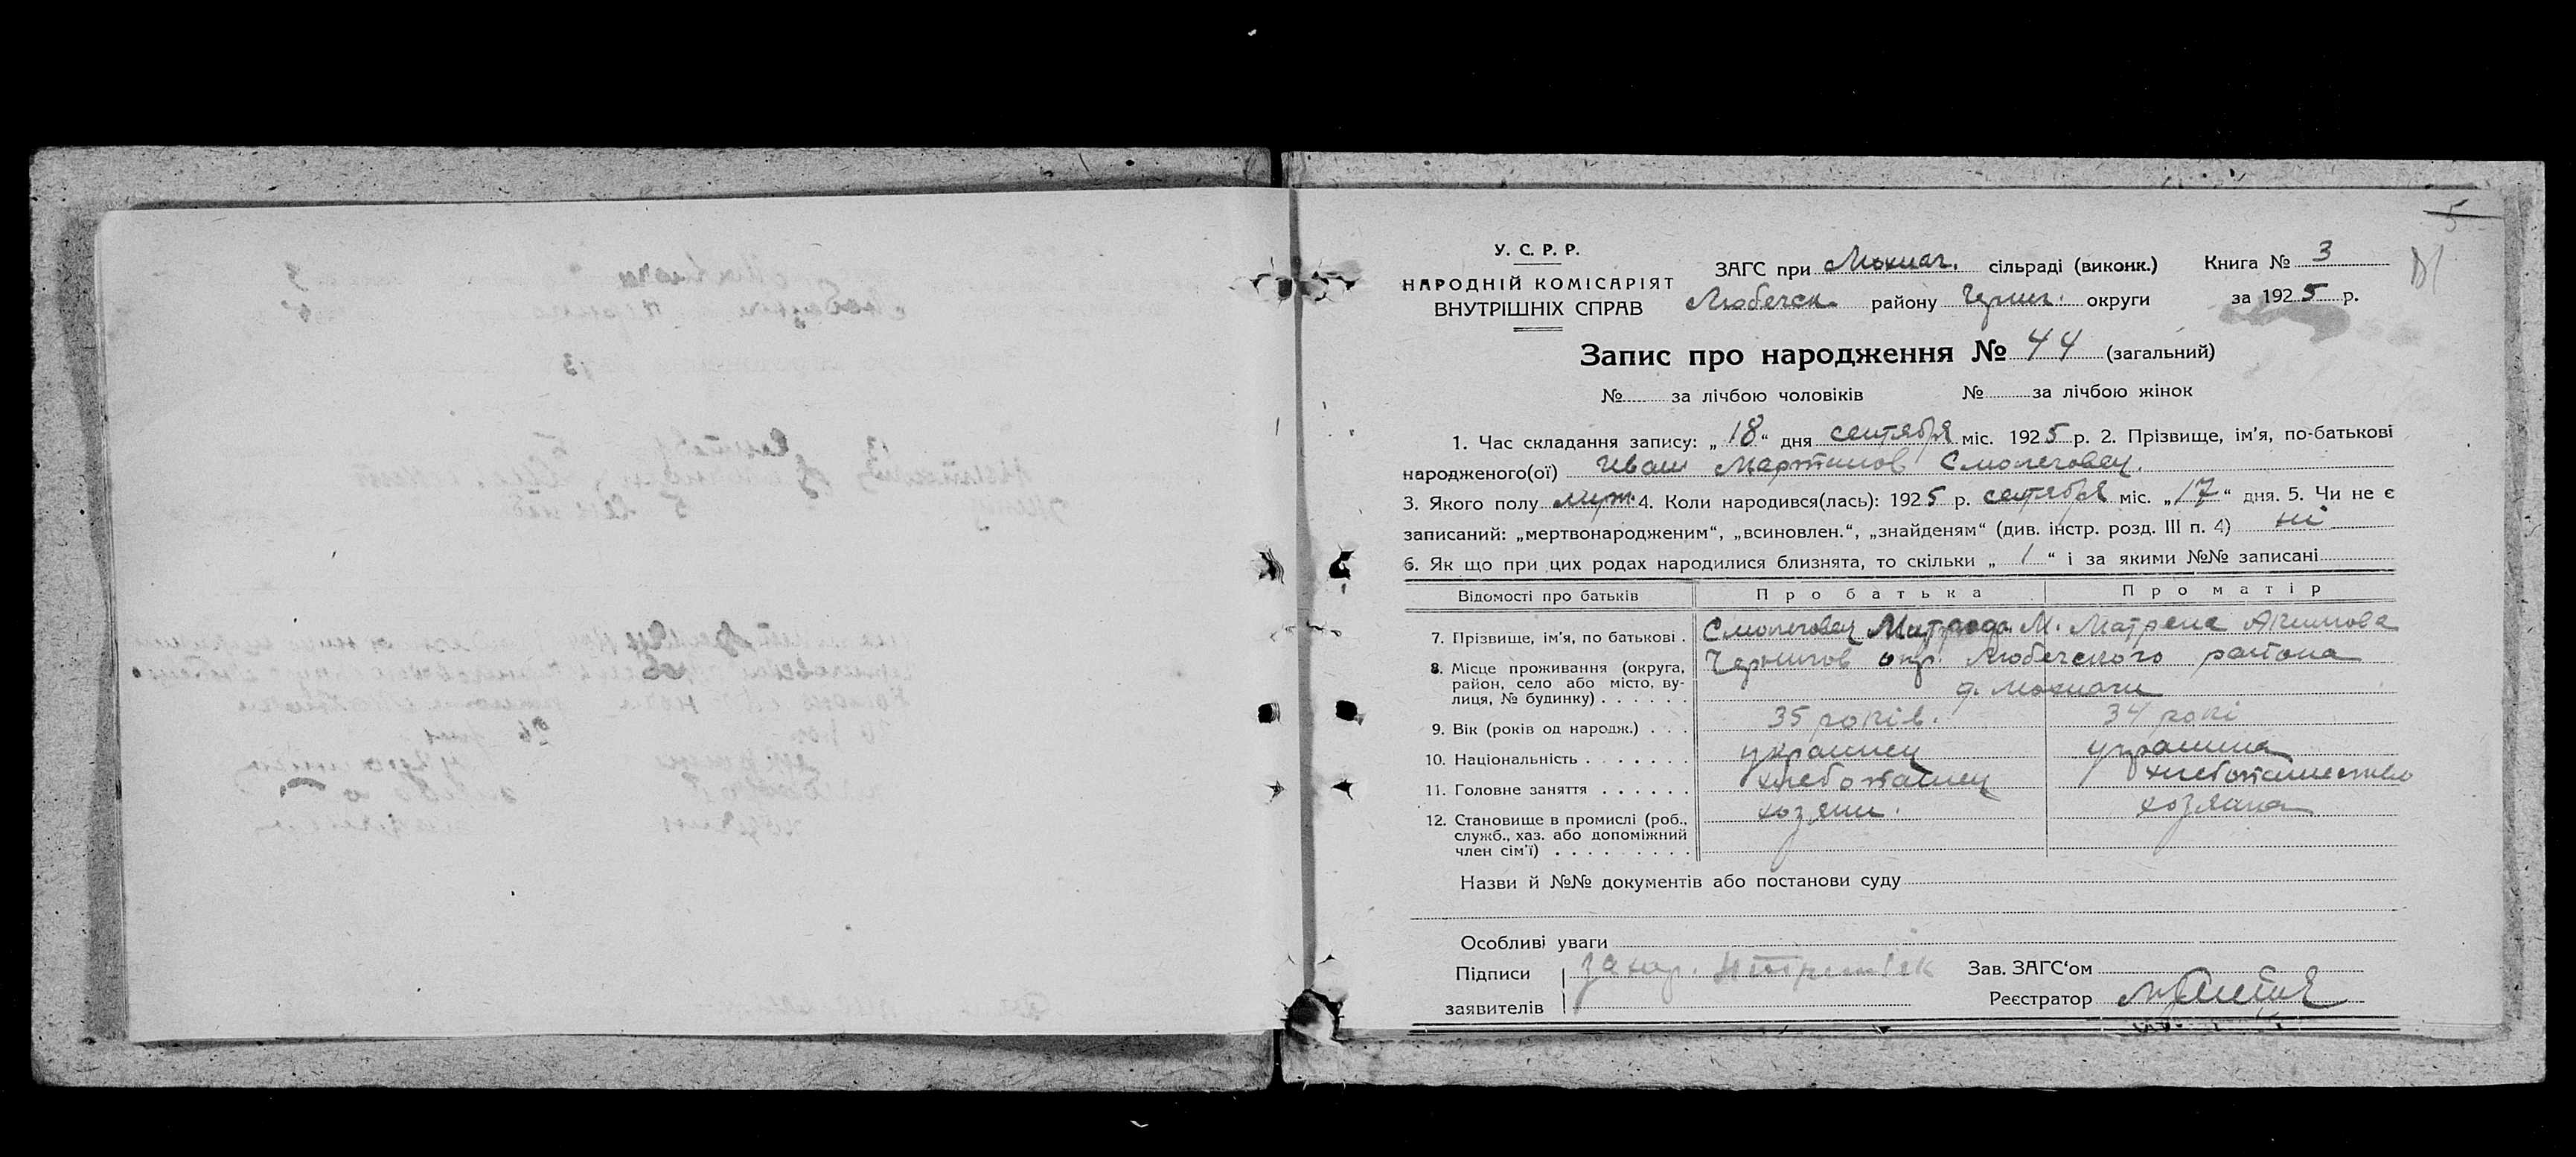 5
У. С. Р. Р.
НАРОДНІЙ КОМІСАРІЯТ
ВНУТРІШНІХ СПРАВ
ЗАГС при Мохнач. сільраді (виконк.) Книга № 3
Любечск. району Черниг. округи за 1925 р.
Запис про народження № 44 (загальний)
№ за лічбою чоловіків № за лічбою жінок
1. Час складання запису: „18“ дня сентября міс. 1925 р. 2. Прізвище, ім'я, по-батькові
народженого(ої) Иван Смолеговец.
3. Якого полу муж. 4. Коли народився(лась): 1925 р. сентября міс. „17“ дня. 5. Чи не є
записаний: „мертвонародженим“, „всиновлен.“, „знайденям“ (див. інстр. розд. III п. 4) ні
6. Як що при цих родах народилися близнята, то скільки „1“ і за якими №№ записані
Відомості про батьків Про батька Про матір
7. Прізвище, ім'я, по батькові . Смолеговец М. Матрена Акимова
8. Місце проживання (округа, Чернигов окр. Любечского района
район, село або місто, ву-
лиця, № будинку) . . . . . . д. Мохначи
9. Вік (років од народж.) . . . 35 років. 34 рокі
10. Національність . . . . . . . украинец украинка
11. Головне заняття . . . . . . хлебопашец хлебопашество
12. Становище в промислі (роб., хозяин. хозяйка
служб., хаз. або допоміжний
член сім'ї) . . . . . . . . .
Назви й №№ документів або постанови суду
Особливі уваги
Підписи Захар. Зав. ЗАГС‘ом
заявителів Реєстратор